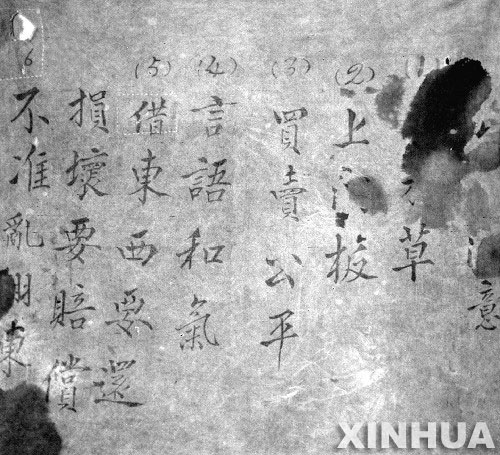 意
(1) 草
(2) 上门板
(3) 買賣公平
(4) 言語和氣
(5) 借東西要還
損壞要賠償
6 不准亂用東
XINHUA